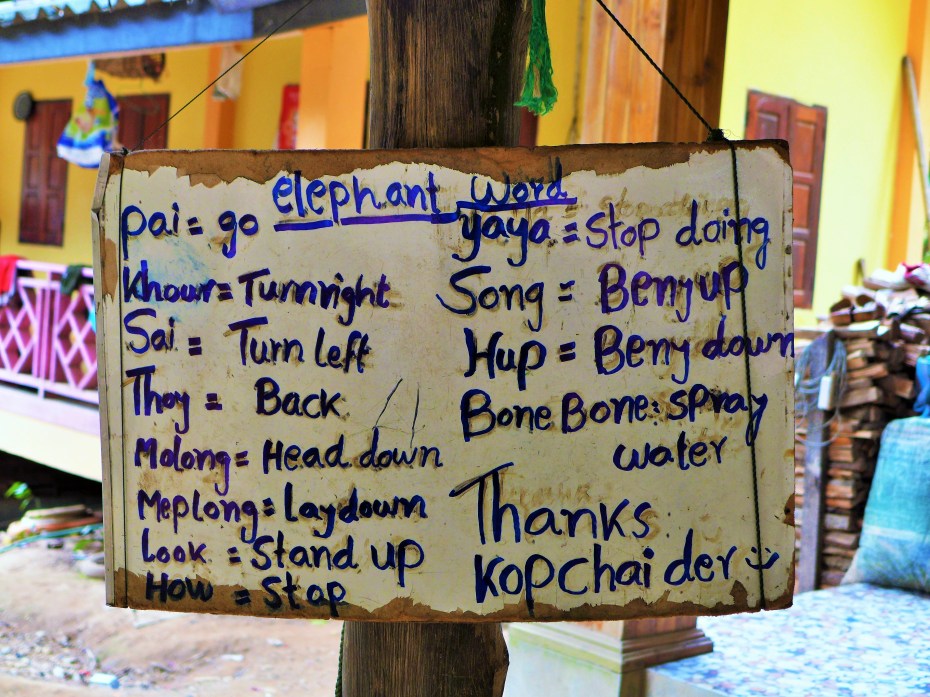 elephant word
pai = go
Khour = Turn right
Sai = Turn left
Thoy = Back
Molong = Head down
Meplong = Lay down
Look = Stand up
How = Stop
yaya = Stop doing
Song = Beny up
Hup = Beny down
Bone Bone: spray
water
Thanks
Kop Chai der